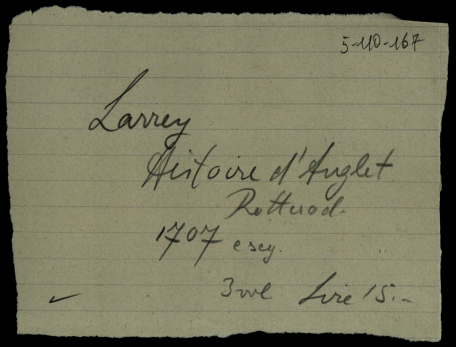 5-110-167
Larrey
Histoire d'Anglet
Rotterod.
1707 e seg.
3 vol Lire 15.-